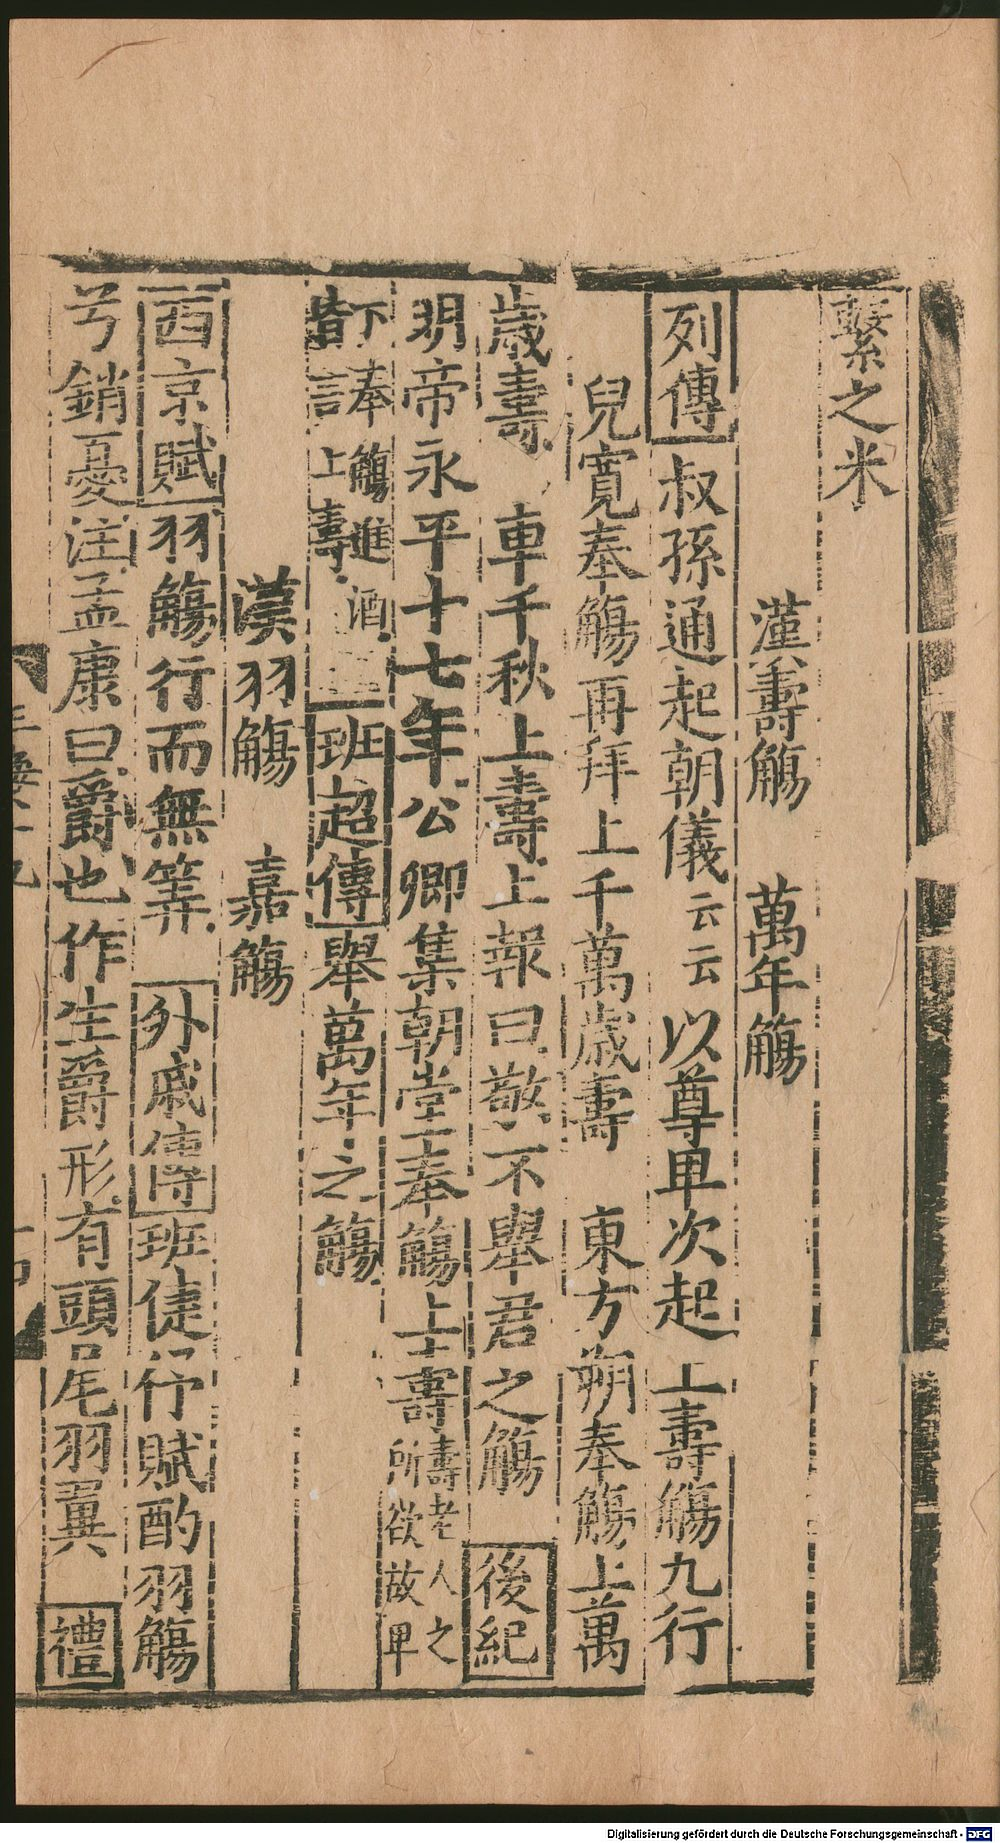 繫之米
漢壽觴　萬年觴
列傳 叔孫通起朝儀云云以尊卑次起上壽觴九行
兒寬奉觴再拜上千萬歲壽　東方朔奉觴上萬
歲壽　車千秋上壽上報曰敬不舉君之觴　後紀
明帝永平十七年公卿集朝堂奉觴上壽壽老人之所欲故卑
下奉觴進酒皆言上壽 班超傳 舉萬年之觴
漢羽觴　嘉觴
西京賦 羽觴行而無筭　外戚傳 班倢伃賦酌羽觴
兮銷憂注孟康曰爵也作生爵形有頭尾羽翼　禮
Digitalisierung gefördert durch die Deutsche Forschungsgemeinschaft - DFG